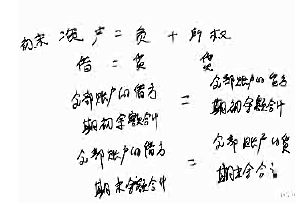 初末 资产 = 负 + 所权
借 = 贷 贷
全部账户的借方 = 全部账户的贷方
期初余额合计 期初余额合计
全部账户的借方 = 全部账户的贷
期末余额合计 期末余合